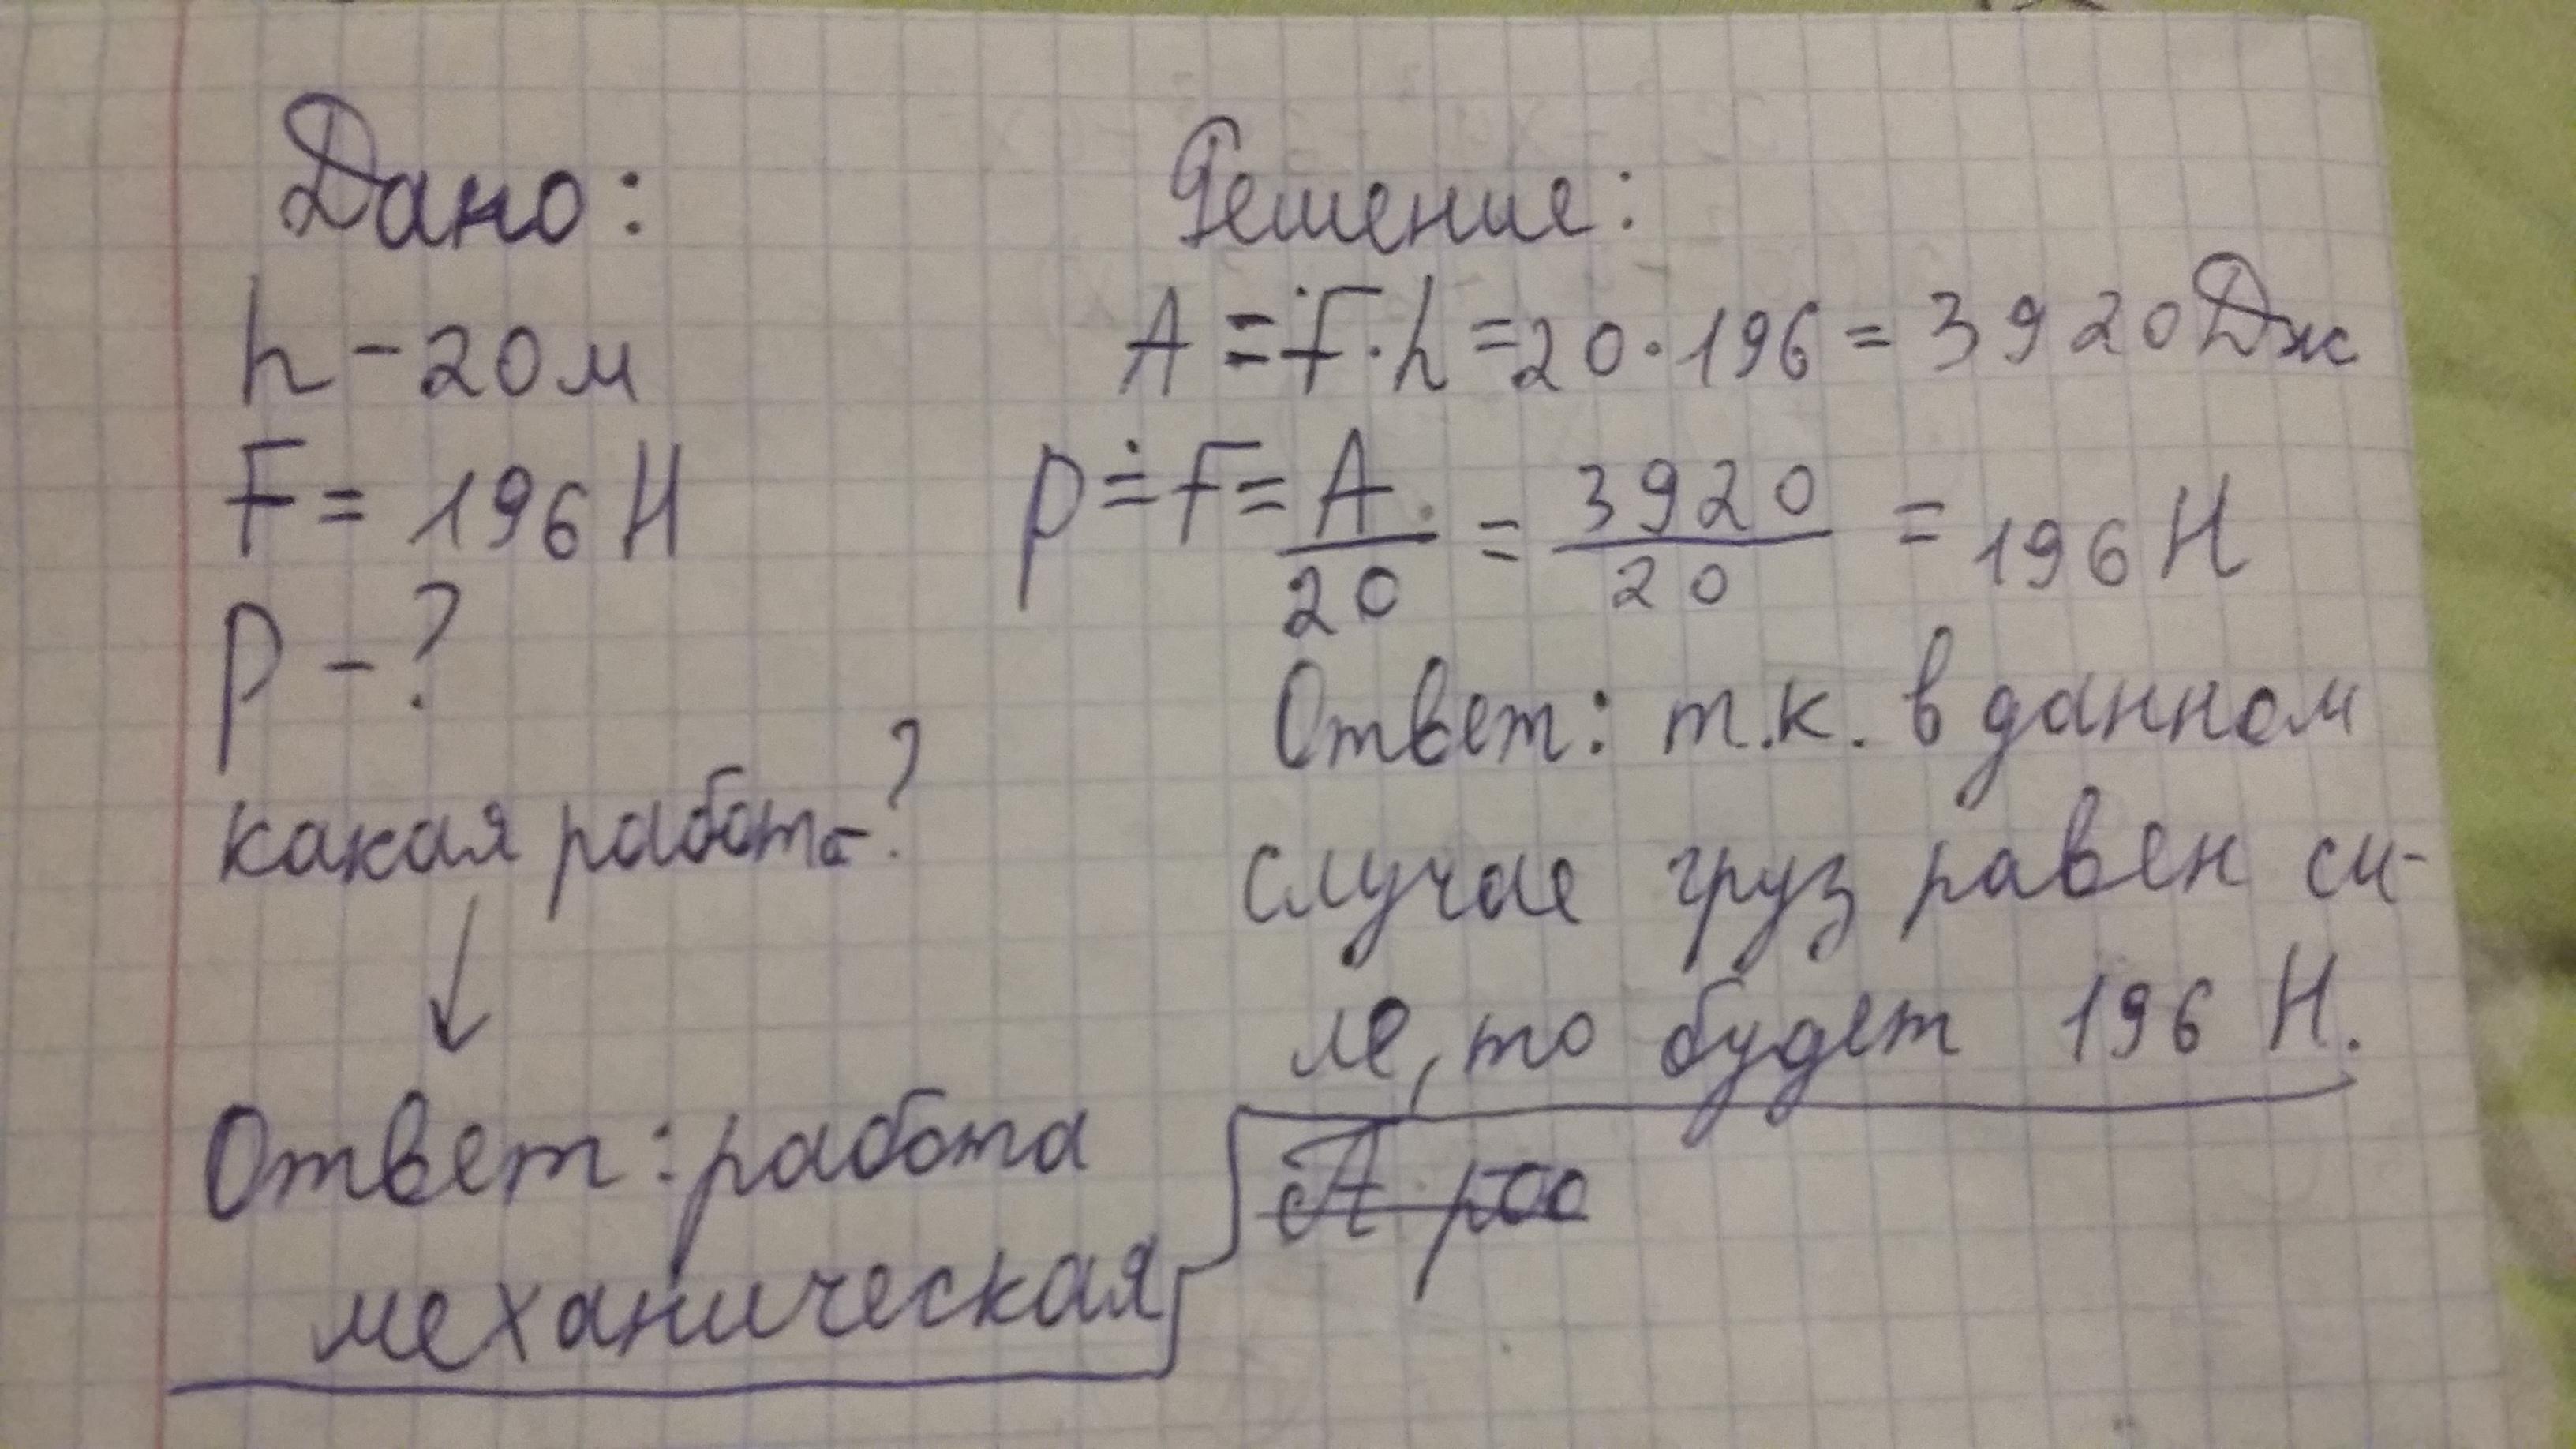 Дано:
h - 20 м
F = 196 Н
P - ?
какая работа?
Ответ: работа
механическая
Решение:
A = F · h = 20 · 196 = 3920 Дж
P = F = A/20 = 3920/20 = 196 Н
Ответ: т.к. в данном
случае груз равен си-
ле, то будет 196 Н.